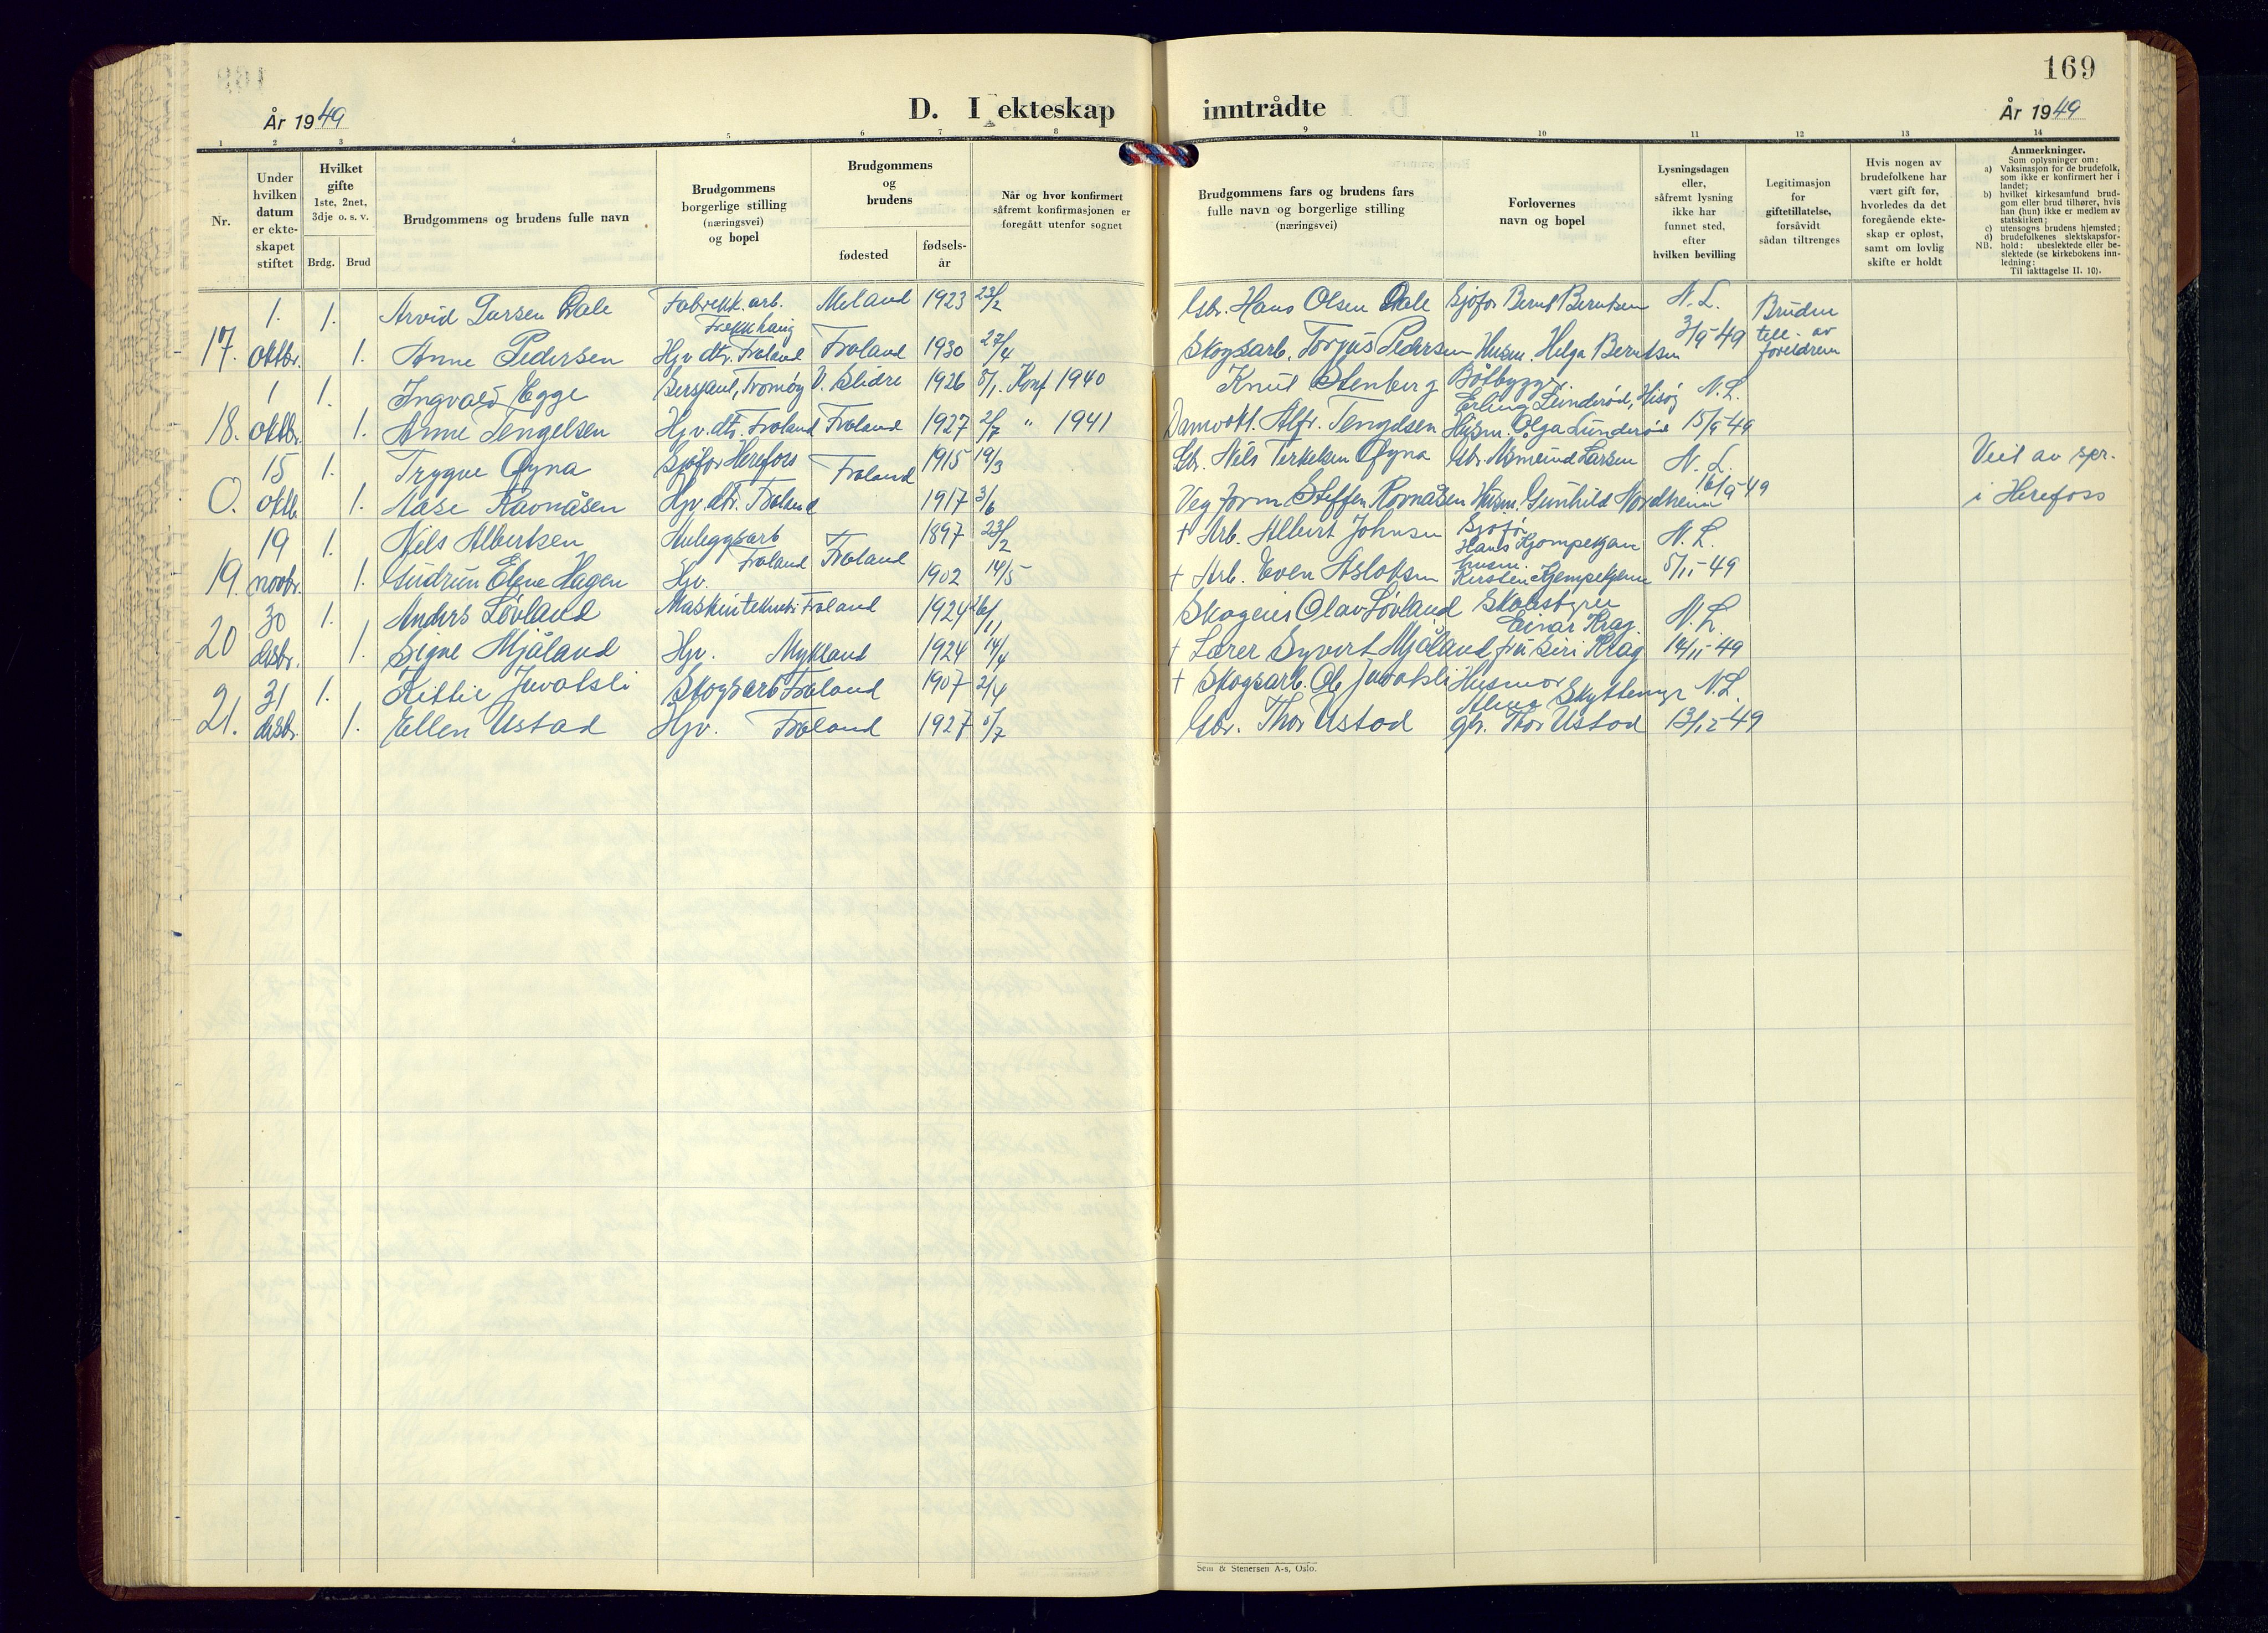 169
År 1949
D. I ekteskap inntrådte
År 1949
1 2 3 4 5 6 7 8 9 10 11 12 13 14
Nr.
Under hvilken datum er ekte-skapet stiftet
Hvilket gifte 1ste, 2net, 3dje o. s. v.
Brdg. Brud
Brudgommens og brudens fulle navn
Brudgommens borgerlige stilling (næringsvei) og bopel
Brudgommens og brudens
fødested
fødsels-år
Når og hvor konfirmert såfremt konfirmasjonen er foregått utenfor sognet
Brudgommens fars og brudens fars fulle navn og borgerlige stilling (næringsvei)
Forlovernes navn og bopel
Lysningsdagen eller, såfremt lysning ikke har funnet sted, efter hvilken bevilling
Legitimasjon for giftetillatelse, forsåvidt sådan tiltrenges
Hvis nogen av brudefolkene har vært gift før, hvorledes da det foregående ekte-skap er opløst, samt om lovlig skifte er holdt
Anmerkninger.
Som oplysninger om:
a) Vaksinasjon for de brudefolk, som ikke er konfirmert her i landet;
b) hvilket kirkesamfund brud-gom eller brud tilhører, hvis han (hun) ikke er medlem av statskirken;
c) utensogns brudens hjemsted;
d) brudefolkenes slektskapsfor-hold: ubeslektede eller be-slektede (se kirkebokens inn-ledning;
NB. Til iakttagelse II. 10).
1. 1. Arvid Larsen Dale Fabrikk. arb. Trekkhaug Meland 1923 23/2 Gbr. Hans Olsen Dale Sjåfør Bernt Berntsen N. L. Bruden
17. oktbr. 1. Anne Pedersen Hjv. dtr. Froland Froland 1930 27/4 Skogsarb. Torjus Pedersen Husm. Helga Berntsen 3/9-49 till. av foreldrene
1 1. Ingvald Egge Sersjant, Tromøy V. Slidre 1926 8/1. Konf 1940 Knut Stenberg Båtbygger Erling Lunderød, Hisøy N. L.
18. oktbr. 1. Anne Tengelsen Hjv. dtr. Froland Froland 1927 2/7 " 1941 Damvokt. Alfr. Tengelsen Husm. Olga Lunderød 15/9-49
15 1. Trygve Øyna Sjåfør Herefoss Froland 1915 19/3 Gbr. Nils Terkelsen Øyna Gbr. Asmund Larsen N. L. Viet av spr.
0. oktb. 1. Aase Ravnåsen Hjv. dtr. Froland 1917 3/6 Veg form. Steffen Ravnåsen Husm. Gunhild Nordheim 16/9 49 i Herefoss
19 1. Nils Albertsen Anleggsarb Froland Froland 1897 23/2 † Arb. Albert Johnsen Sjåfør Hans Kjempekjenn N. L.
19. novbr. 1. Gudrun Elene Hagen Hjv. 1902 14/5 † Arb. Even Aslaksen husm. Kirsten Kjempekjenn 5/11-49
30 1. Anders Løvland Maskintekniker Froland 1924 26/11 Skogeier Olav Løvland Skolestyrer Einar Krag. N. L.
20 desbr. 1. Signe Mjåland Hjv. Mykland 1924 14/4 † Lærer Syvert Mjåland fru Siri Krag 14/11-49
31 1. Kittil Juvatsli Skogsarb Froland 1907 2/4 † Skogsarb. Ole Juvatsli Husmor Alma Skyttemyr N. L.
21. desbr. 1. Ellen Ustad Hjv. Froland 1927 5/7 Gbr. Thor Ustad gbr. Thor Ustad 13/12-49
Sem & Stenersen A-s, Oslo.